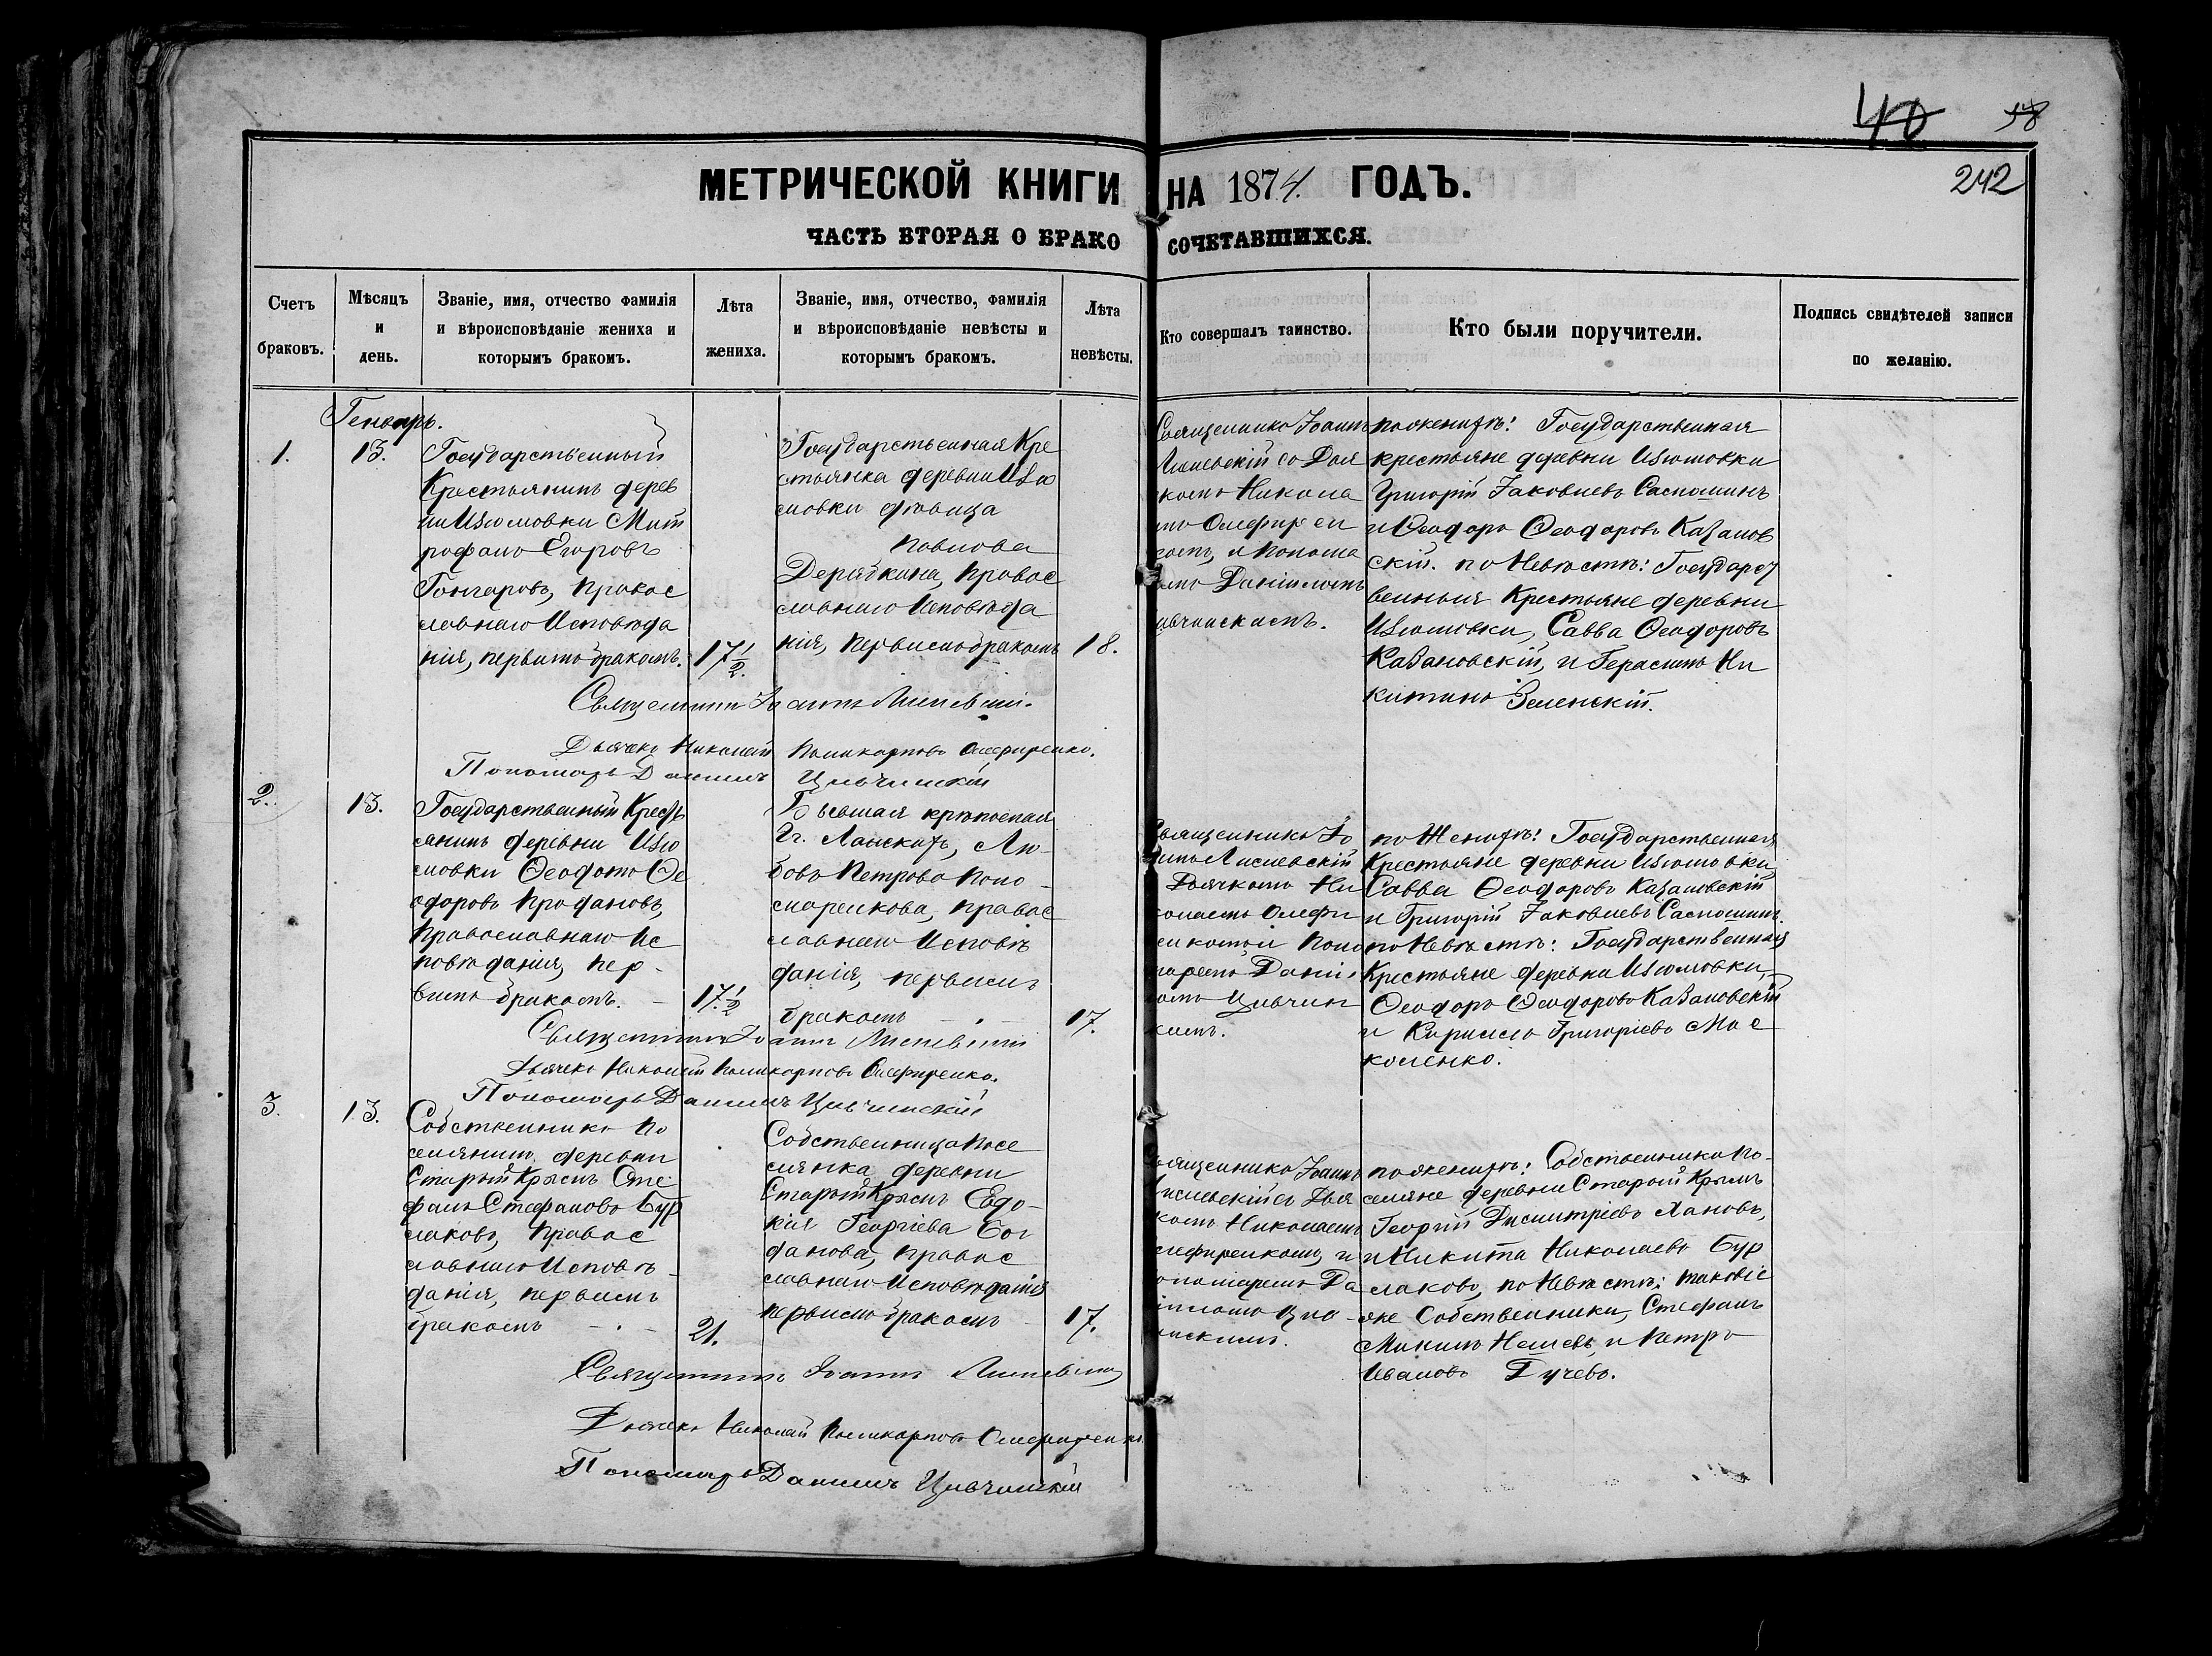 40 58
242
МЕТРИЧЕСКОЙ КНИГИ НА 1874. ГОДЪ.
ЧАСТЬ ВТОРАЯ О БРАКОСОЧЕТАВШИХСЯ.
Счетъ браковъ.
Мѣсяцъ и день.
Званіе, имя, отчество фамилія
и вѣроисповѣданіе жениха и
которымъ бракомъ.
Лѣта жениха.
Званіе, имя, отчество, фамилія
и вѣроисповѣданіе невѣсты и
которымъ бракомъ.
Лѣта невѣсты.
Кто совершалъ таинство.
Кто были поручители.
Подпись свидѣтелей записи
по желанію.
Генварь.
1.
13.
Государственный
Крестьянинъ дерев
ни Изюмовки Мит
рофанъ Егоровъ
Гончаровъ, правос
лавнаго Исповѣда
нія, первымъ бракомъ.
17 1/2.
Государственная Кре
стьянка деревни Изю
мовки дѣвица
Павлова
Дерябкина, правос
лавнаго Исповѣда
нія, первымъ бракомъ
18.
Священникъ Іоаннъ
Лисневскій съ Дья
комъ Никола
емъ Олефирен
комъ, и понома
ремъ Даніиломъ
Цивчинскимъ.
по женихѣ: Государственныя
крестьяне деревни Изюмовки
Григорій Іаковлевъ Саспошинъ
и Ѳеодоръ Ѳеодоровъ Казанов
скій. по Невѣстѣ: Государст
венныя Крестьяне деревни
Изюмовки, Савва Ѳеодоровъ
Казановскій, и Герасимъ Ни
китинъ Зеленскій.
Священникъ Іоаннъ Лисневскій.
Дьячекъ Николай Поликарповъ Олефиренко.
Пономарь Даніилъ Цивчинскій
2.
13.
Государственный Кресть
янинъ деревни Изю
мовки Ѳеодотъ Ѳе
одоровъ Продановъ,
Православнаго Ис
повѣданія, пер-
вымъ бракомъ.
17 1/2
Бывшая крѣпосная
Гг. Ланскихъ, Лю-
бовь Петрова Поно-
маренкова, правос
лавнаго Исповѣ
данія, первымъ
бракомъ
17.
Священникъ Іо
аннъ Лисневскій
Дьячкомъ Ни
колаемъ Олефи
ренкомъ и поно
маремъ Даніи
ломъ Цивчин
скимъ.
по Женихѣ: Государственныя
Крестьяне деревни Изюмовки,
Савва Ѳеодоровъ Казановскій
и Григорій Іаковлевъ Саспошинъ.
по Невѣстѣ: Государственныя
Крестьяне деревни Изюмовки,
Ѳеодоръ Ѳеодоровъ Казановскій
и Кириллъ Григоріевъ Мос
коленко.
Священникъ Іоаннъ Лисневскій
Дьячекъ Николай Поликарповъ Олефиренко.
Пономарь Даніилъ Цивчинскій
3.
13.
Собственникъ По
селянинъ деревни
Старый Крымъ Сте
фанъ Стефановъ Бур
лаковъ, правос
лавнаго Исповѣ-
данія, первымъ
бракомъ
21.
Собственница Посе
лянка деревни
Старый Крымъ Евдо-
кія Георгіева Бог
данова, правос
лавнаго Исповѣданія
первымъ бракомъ
17.
Священникъ Іоаннъ
Лисневскій съ Дья
комъ Николаемъ
Олефиренкомъ, и
пономаремъ Да
ніиломъ Цив-
чинскимъ.
по женихѣ: Собственники по-
селяне деревни Старый Крымъ
Георгій Димитріевъ Хановъ,
и Никита Николаевъ Бур
лаковъ, по Невѣстѣ: таковіе
же Собственники, Стефанъ
Нешевъ, и Петръ
Ивановъ Гучевъ.
Священникъ Іоаннъ Лисневскій
Дьячекъ Николай Поликарповъ Олефиренко.
Пономарь Даніилъ Цивчинскій